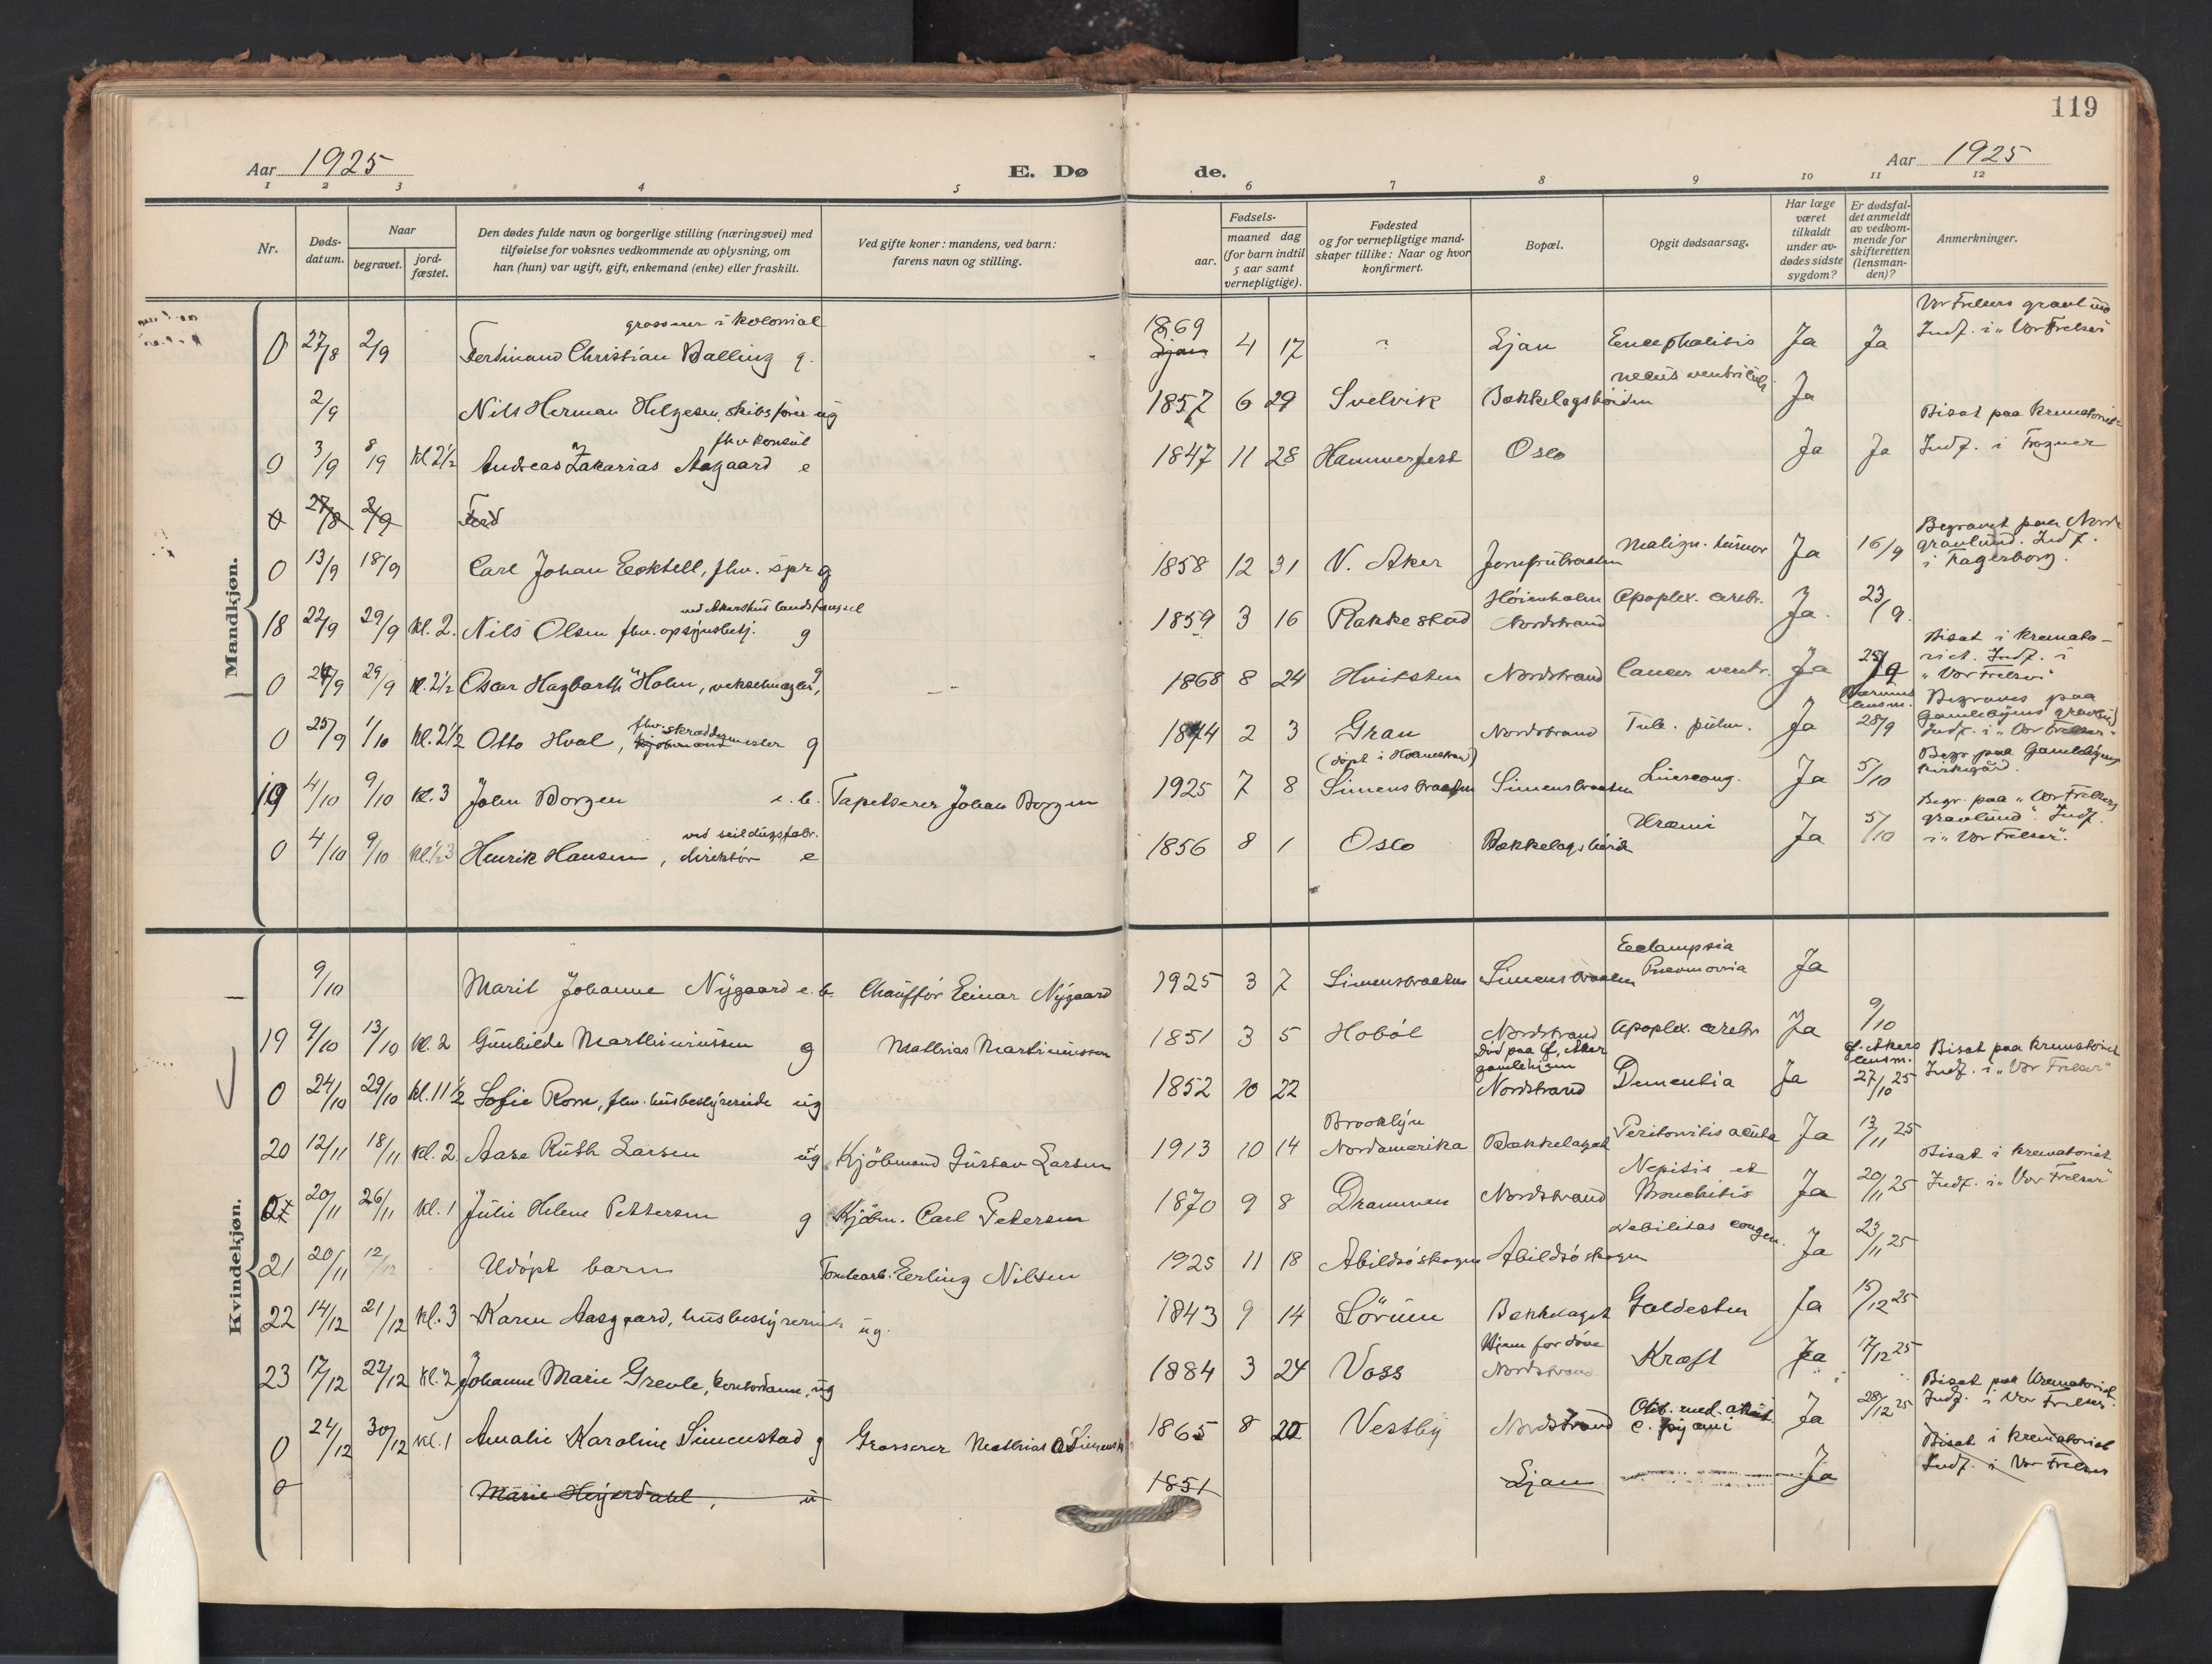 119
Aar 1925
E. Dø
de.
Aar 1925
1 2 3 4 5 6 7 8 9 10 11 12
Nr.
Døds-
datum.
Naar
begravet.
jord-
fæstet.
Den dødes fulde navn og borgerlige stilling (næringsvei) med
tilføielse for voksnes vedkommende av oplysning, om
han (hun) var ugift, gift, enkemand (enke) eller fraskilt.
Ved gifte koner: mandens, ved barn:
farens navn og stilling.
Fødsels-
aar.
maaned dag
(for barn indtil
5 aar samt
vernepligtige).
Fødested
og for vernepligtige mand-
skaper tillike: Naar og hvor
konfirmert.
Bopæl.
Opgit dødsaarsag.
Har læge
været
tilkaldt
under av-
dødes sidste
sygdom?
Er dødsfal-
det anmeldt
av vedkom-
mende for
skifteretten
(lensman-
den)?
Anmerkninger.
Mandkjøn.
grosserer i kolonial
0 27/8 2/9 Ferdinand Christian Balling g. 1869 Ljan 4 17 " Ljan Encephalitis Ja Ja Vor Frelsers gravlund
Indf. i "Vor Frelser"
2/9 Nils Herman Helgesen, skibsfører ug 1857 6 29 Svelvik Bækkelagshöiden ventriculi Ja
fhv konsul
0 3/9 8/9 Kl 2½ Andreas Zakarias Aagaard e 1847 11 28 Hammerfest Oslo Ja Ja Bisat paa krematoriet
Indf. i Frogner
0 27/8 2/9 Ferd
0 13/9 18/9 Carl Johan Eektell, fhv. spr g 1858 12 31 V. Aker Jomfrubraaten Malign. tumor Ja 16/9 Begravet paa Nordr.
gravlund. Indf.
i Fagerborg.
ved Akershus landsfængsel
18 22/9 29/9 Kl. 2. Nils Olsen fhv. opsynsbetj. g 1859 3 16 Rakkestad Höienhalm Nordstrand Apoplex. cerebr. Ja. 23/9
0 24/9 29/9 Kl. 2½ Oscar Hagbarth Holm, vekselmægler, g 1868 8 24 Hvitsten Nordstrand Cancer ventr. Ja 25/9 Bisat i kremato-
riet. Indf. i
"Vor Frelser"
0 25/9 1/10 Kl. 2½ Otto Hval, fhv. skræddermester kjøbmand g 1874 2 3 Gran Nordstrand Tub. pulm. Ja Bærums lensm. 28/9 Begraves paa
Gamlebyens gravlund
Indf. i "Vor Frelser"
(döpt i Holmestrand)
19 4/10 9/10 Kl. 3 John Borgen e. b. Tapetserer Johan Borgen 1925 7 8 Simensbraaten Simensbraaten Ja 5/10 Begr. paa Gamlebyens
kirkegård.
ved seildugsfabr.
0 4/10 9/10 Henrik Hansen, direktör e 1856 8 1 Oslo Bækkelagshöiden Uræmi Ja 5/10 Begr. paa "Vor Frelsers
gravlund". Indf.
i "Vor Frelser".
Kvindekjøn.
9/10 Marit Johanne Nygaard e. b. Chaufför Einar Nygaard 1925 3 7 Simensbraaten Simensbraaten Eclampsia
Pneumonia Ja
19 9/10 13/10 Kl. 2 Gunhilde Marthinius​sen g Mathias Martiniussen 1851 3 5 Hoböl Nordstrand Apoplex. cerebr Ja 9/10
0 24/10 29/10 Kl. 11½ Sofie Rom, fhv. husbestyrerinde ug 1852 10 22 Död paa Ö. Aker
gamlehjem
Nordstrand Dementia Ja Ö. Akers
lensm.
27/10 25 Bisat paa krematoriet
Indf. i "Vor Frelser"
20 12/11 18/11 Kl. 2. Aase Ruth Larsen ug Kjöbmand Gustav Larsen 1913 10 14 Brooklyn
Nordamerika Bækkelaget Peritonitis acuta Ja 13/11 25
0 20/11 26/11 Kl. 1 Julie Helene Pettersen g Kjöbm. Carl Petersen 1870 9 8 Drammen Nordstrand Nepitis et
Bronchitis Ja 20/11 25 Bisat i krematoriet
Indf. i "Vor Frelser"
21 20/11 12/12 Udöpt barn Tomtearb. Erling Nilsen 1925 11 18 Abildsöskogen Abildsöskogen Debilitas congen. Ja 23/11 25
22 14/12 21/12 Kl. 3 Karen Aasgaard, husbestyrerinde ug. 1843 9 14 Sörum Bækkelaget Galdesten Ja 15/12 25
23 17/12 22/12 Kl. 2 Johanne Marie Grevle, kontordame, ug 1884 3 24 Voss Hjem for döve
Nordstrand Kræft Ja 17/12 25
0 24/12 30/12 Kl. 1 Amalie Karoline Simenstad g Grosserer Mathias O Simenstad 1865 8 20 Vestby Nordstrand Otit. med. acut.
c. pyæmi Ja 28/12 25 Bisat paa Krematoriet
Indf. i Vor Frelser.
0 Marie Heyerdahl, u 1851 Ljan Ja Bisat i krematoriet
Indf. i Vor Frelser